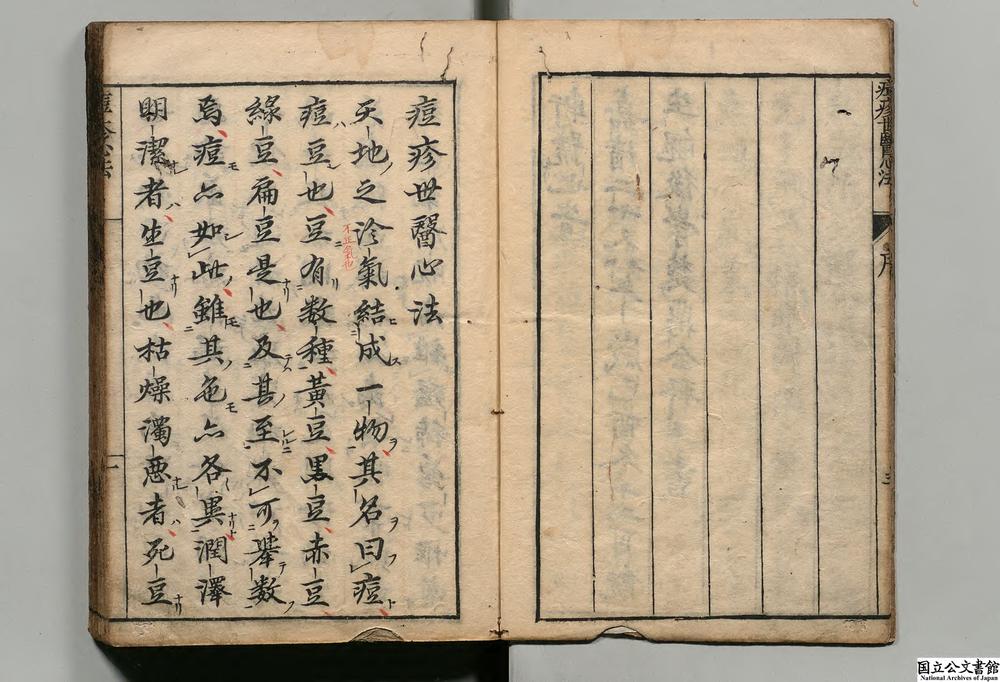 痘疹世醫心法
序
三
痘疹世醫心法
天地之沴氣結成一物其名曰痘
不正氣也
痘豆也豆有数種黃豆黒豆赤豆
緑豆扁豆是也及其至不可舉数
焉痘亦如此雖其色亦各異潤澤
明潔者生豆也枯燥濁悪者死豆
一
国立公文書館
National Archives of Japan